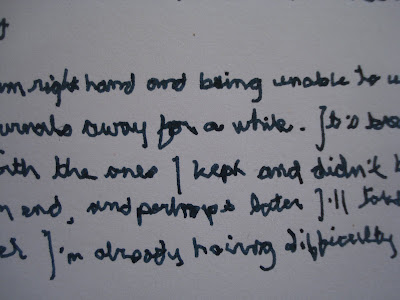 m right hand and being unable to u
urnals away for a while. It's bea
orth the ones I kept and didn't b
n end, and perhaps later I'll take
er I'm already having difficulty